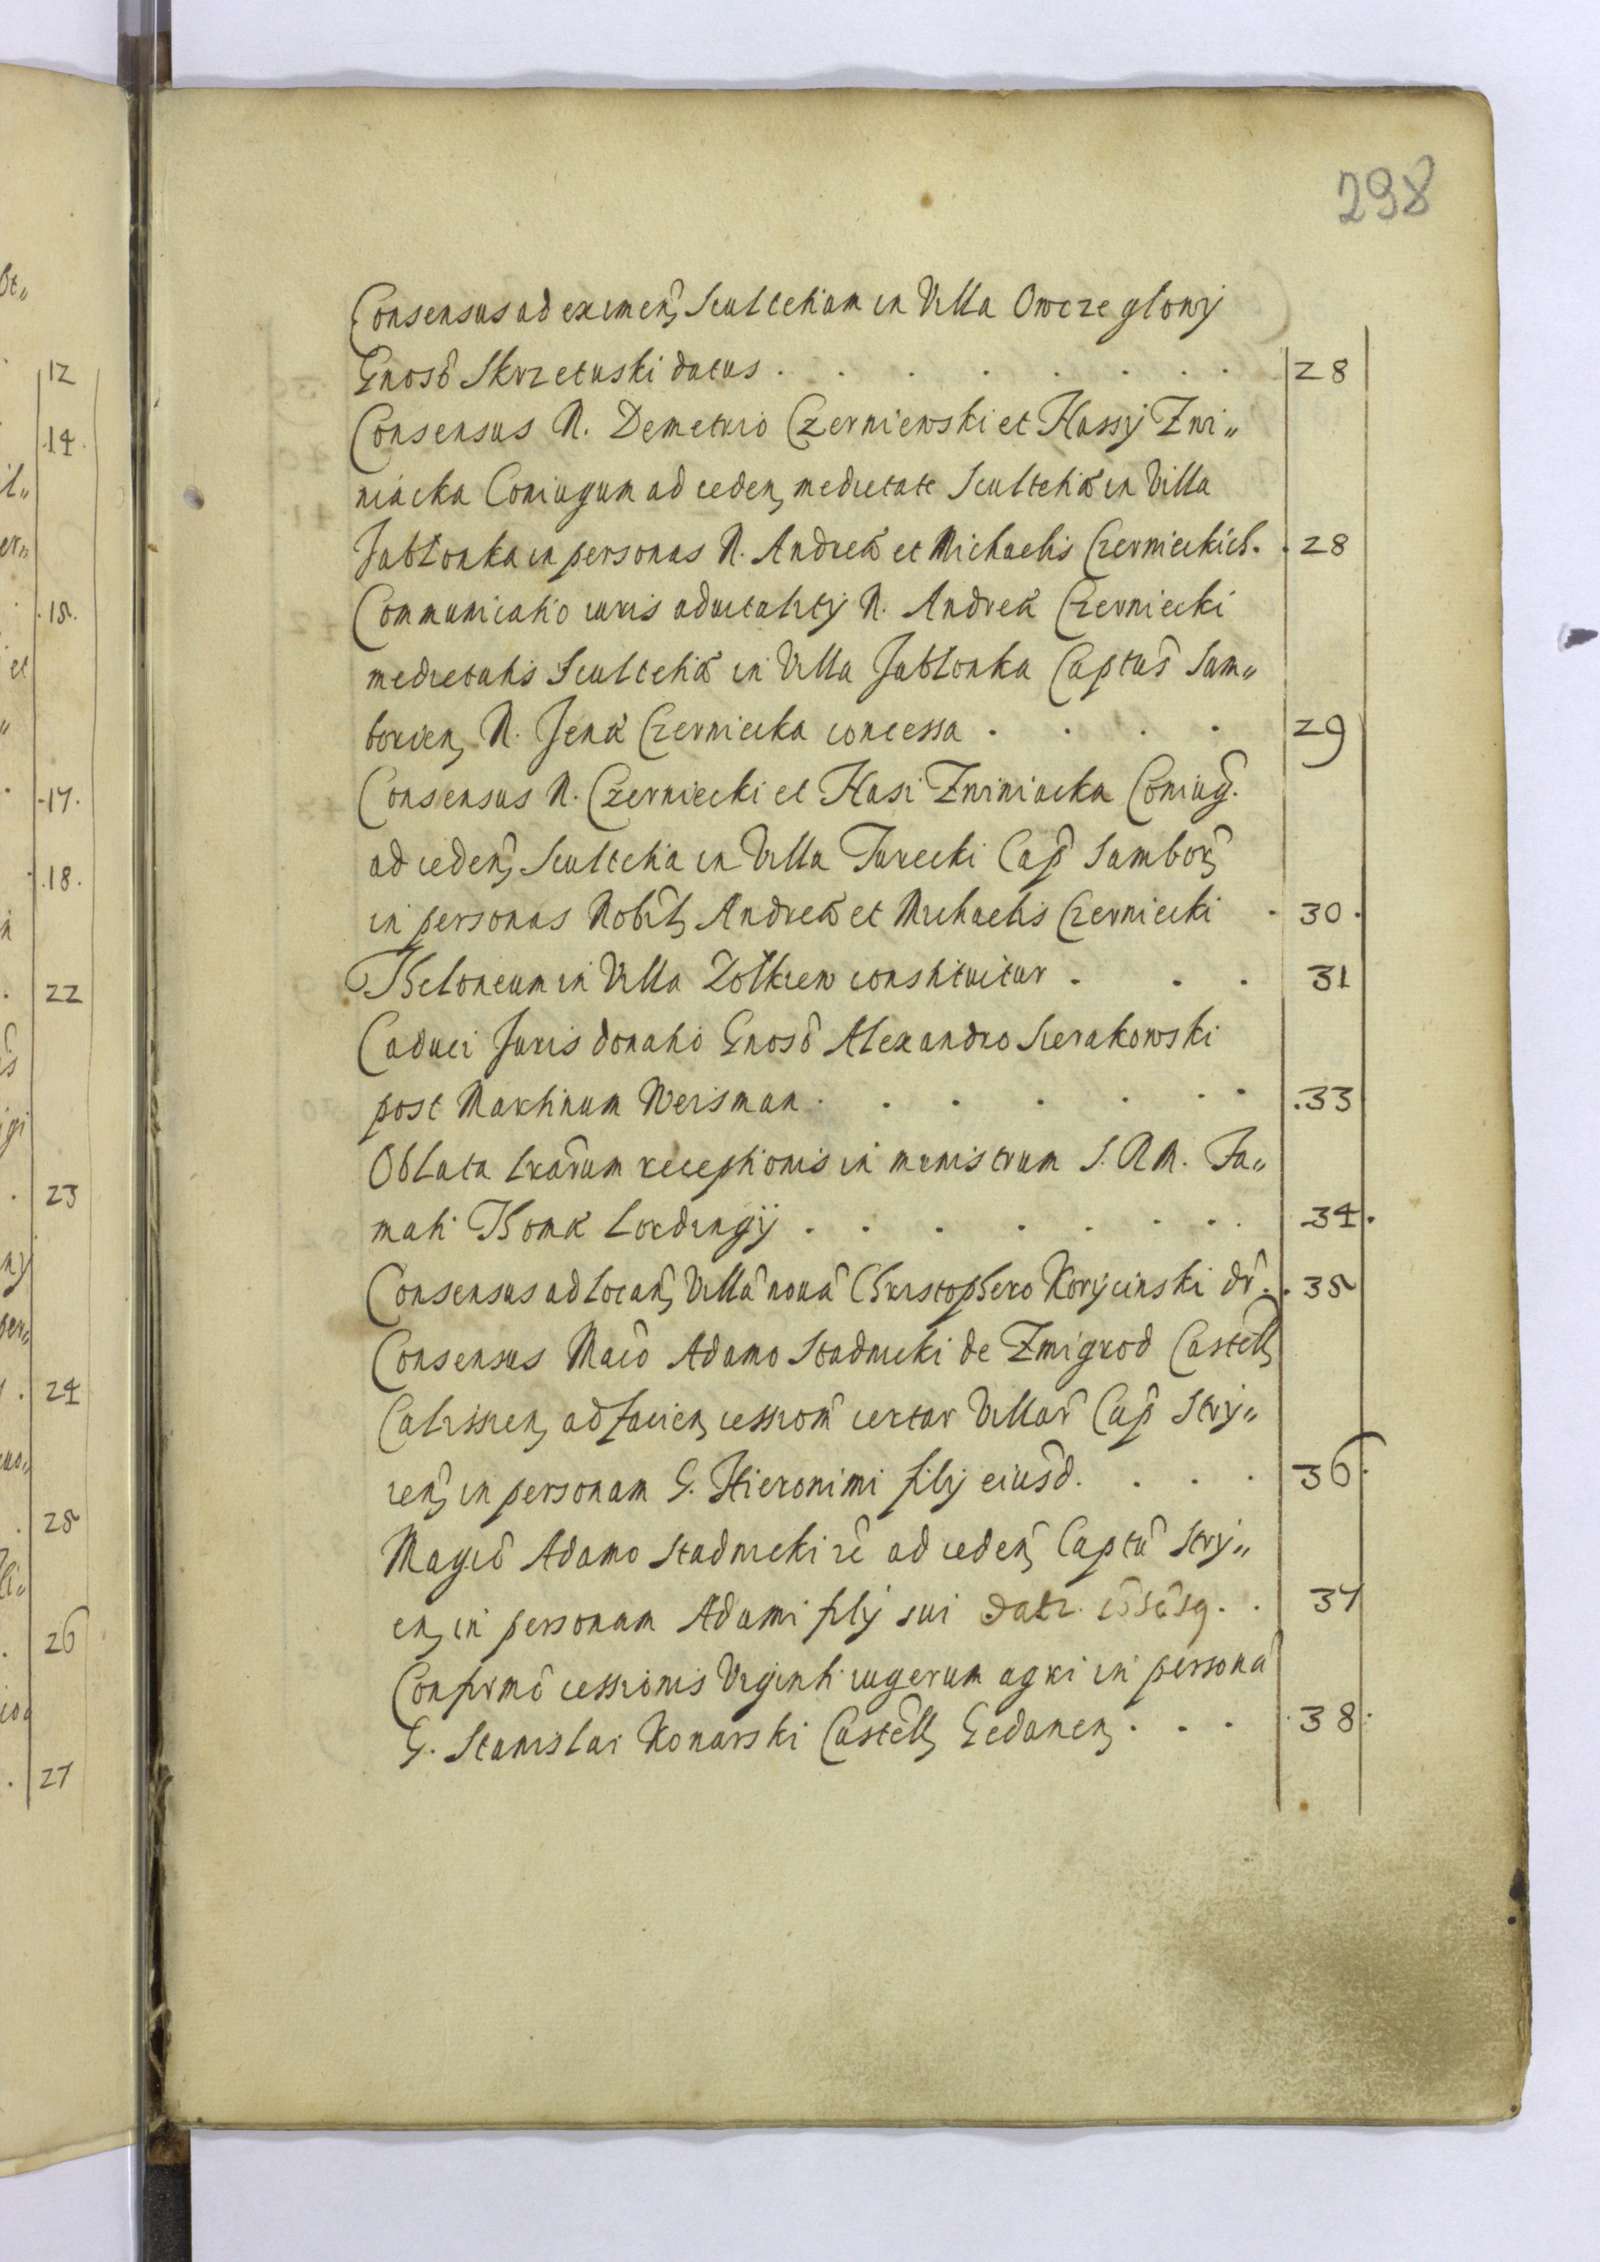 298
Consensus ad eximen, Scultetiam in Villa Owcze glowy
Gnoso Skrzetuski datus . . . . . . . 28
Consensus N. Demetrio Czerniewski et Hassy Zwi„
niacka Coniugum ad ceden, medietate Scultetiæ in Villa
Jablonka in personas N. Andreæ et Michaelis Czernieckich . 28
Communicatio iuris aduitality N. Andreæ Czerniecki
medietatis Scultetiæ in Villa Jablonka Captus Sam„
borien, N. Jenæ Czerniecka concessa . . . . 29
Consensus N. Czerniecki et Hasi Zwiniacka Coniug.
ad ceden, Scultetia in Villa Turecki Cap Sambor,
in personas Nobil, Andreæ et Michaelis Czerniecki . 30.
Theloneum in Villa Zolkiew constituitur . . . 31
Caduci Juris donatio Gnoso Alexandro Sierakowski
post Martinum Weisman . . . . . . . 33
Oblata Lrarum receptionis in ministrum S. R M. Fa„
mati Thomæ Lordingij . . . . . . . 34.
Consensus ad locan, Villa noua Christophero Korycinski dr. . 35
Consensus Maco Adamo Stadnicki de Zmigrod Castell,
Calissien, ad facien, cession certar Villar Cap Stry„
ien, in personam G. Hieronimi filij eiusd. . . . 36.
Magco Adamo Stadnicki rc ad ceden, Captu Stry„
en, in personam Adami filij sui datr. cosesq. . 37
Confirmo cessionis Viginti iugerum agri in persona
G. Stanislai Konarski Castell, Gedanen, . . . 38.
12
14.
15.
17.
18.
22
23
24
25
26
27